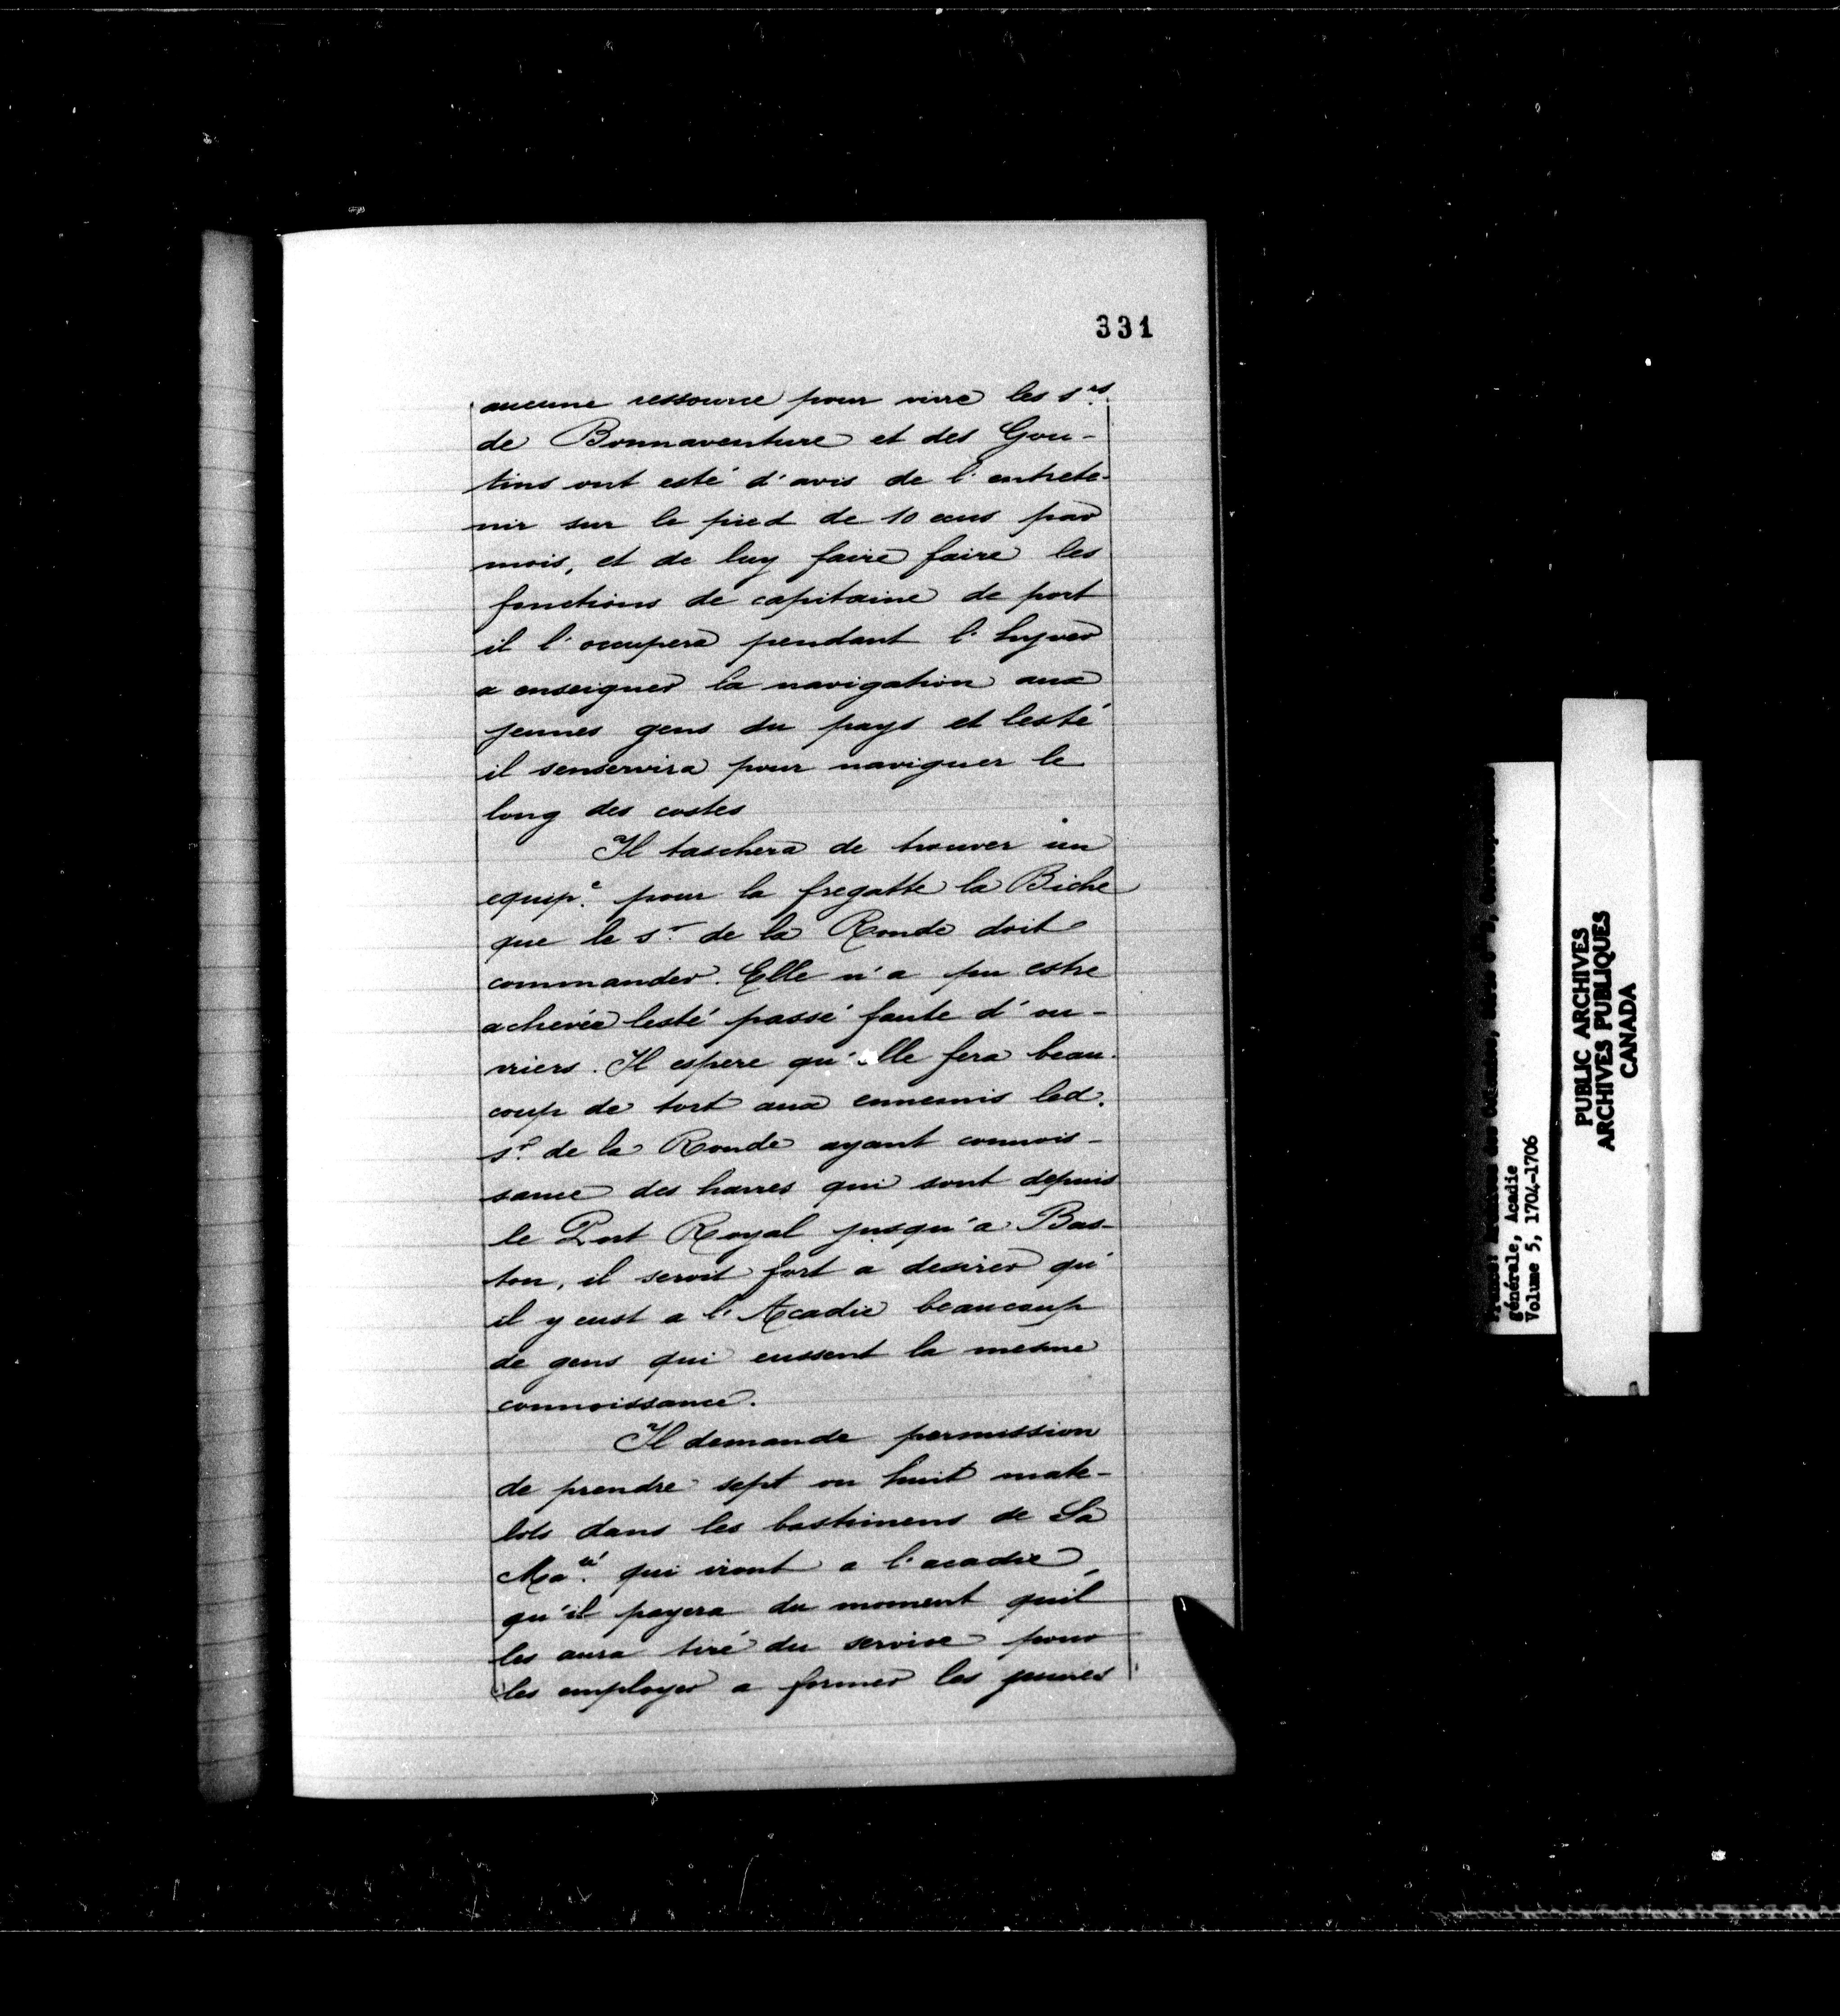 331
aucune ressource pour vivre les s.rs
de Bonnaventure et des Gou-
tins ont esté d'avis de l'entrete-
nir sur le pied de 10 ecus par
mois, et de luy faire faire les
fonctions de capitaine de port
il l'occupera pendant l'hyver
a enseigner la navigation aux
jeunes gens du pays et lesté
il senservira pour naviguer le
long des costes
Il taschera de trouver un
equip.e pour la fregatte la Biche
que le s.r de la Ronde doit
commander. Elle n'a pu estre
achevée lesté passé faute d'ou-
vriers. Il espere qu'elle fera beau-
coup de tort aux ennemis led.
s.r de la Ronde ayant connois-
sance des havres qui sont depuis
le Port Royal jusqu'a Bas-
ton, il seroit fort a desirer qu'
il y eust a l'Acadie beaucoup
de gens qui eussent la mesme
connoissance.
Il demande permission
de prendre sept ou huit mate-
lots dans les bastimens de Sa
Ma.té qui iront a l'acadie,
qu'il payera du moment quil
les aura tiré du service pour
les employer a former les jeunes
générale, Acadie
Volume 5, 1704-1706
PUBLIC ARCHIVES
ARCHIVES PUBLIQUES
CANADA